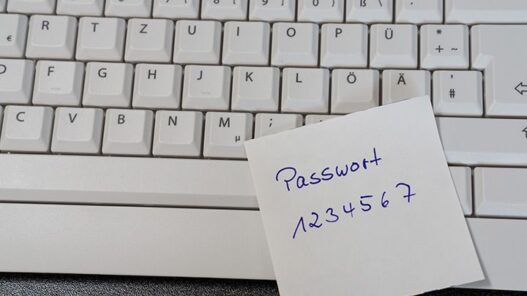 € R T Z U I O P Ü * + ~
D F G H J K L Ö Ä ' #
C V B N M µ ;
Passwort
1234567